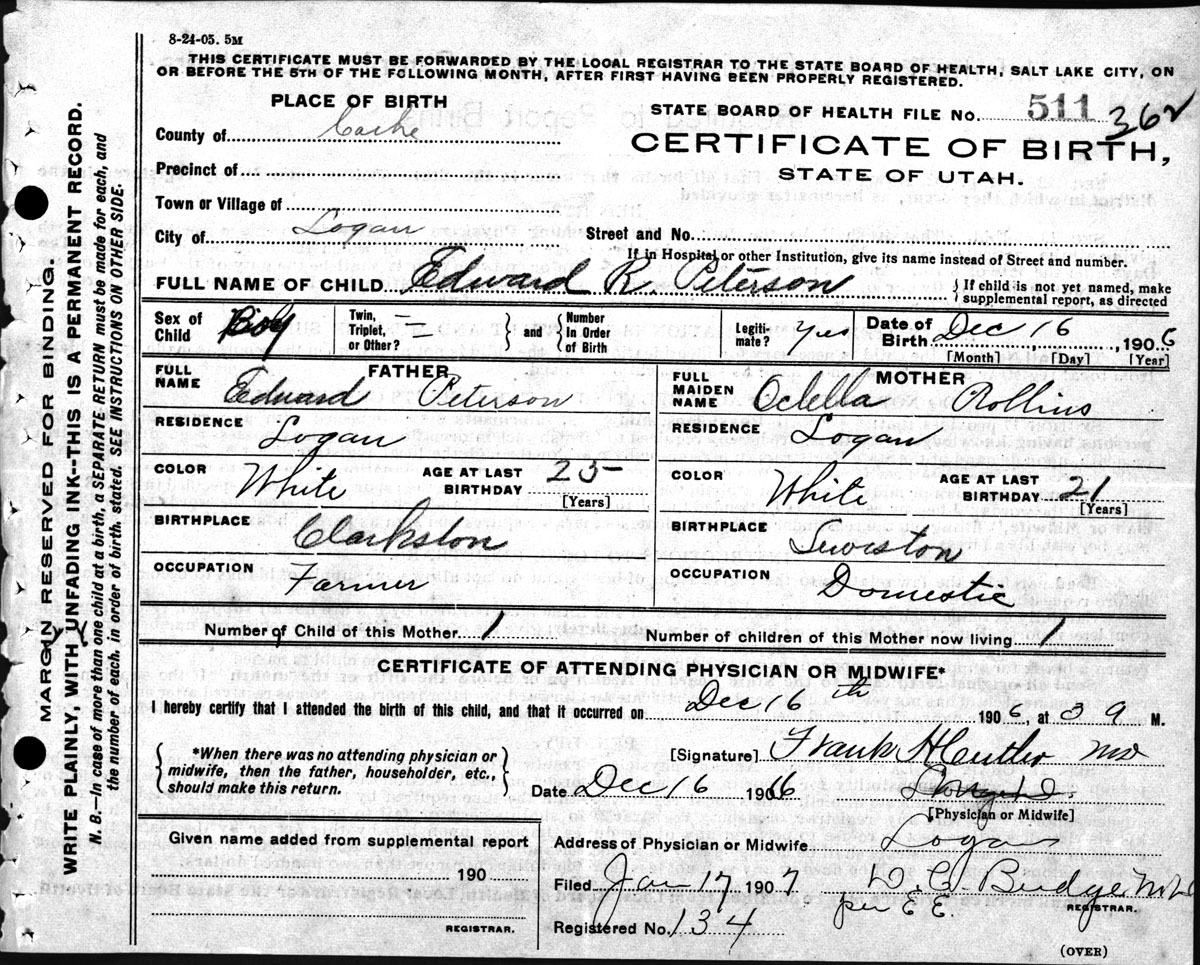 8-24-05. 5M
THIS CERTIFICATE MUST BE FORWARDED BY THE LOCAL REGISTRAR TO THE STATE BOARD OF HEALTH, SALT LAKE CITY, ON
OR BEFORE THE 5TH OF THE FOLLOWING MONTH, AFTER FIRST HAVING BEEN PROPERLY REGISTERED.
PLACE OF BIRTH
STATE BOARD OF HEALTH FILE No. 511 362
County of Cache
CERTIFICATE OF BIRTH,
STATE OF UTAH.
Precinct of
Town or Village of
City of Logan Street and No.
If in Hospital, or other Institution, give its name instead of Street and number.
FULL NAME OF CHILD Edward R. Peterson { If child is not yet named, make
supplemental report, as directed
Sex of Child Boy Twin, Triplet, or Other? — } and { Number In Order of Birth Legiti-mate? yes Date of Birth Dec 16, 1906
[Month] [Day] [Year]
FATHER
FULL NAME Edward Peterson
RESIDENCE Logan
COLOR White AGE AT LAST BIRTHDAY 25
[Years]
BIRTHPLACE Clarkston
OCCUPATION Farmer
MOTHER
FULL MAIDEN NAME Oclella Rollins
RESIDENCE Logan
COLOR White AGE AT LAST BIRTHDAY 21
[Years]
BIRTHPLACE Lewiston
OCCUPATION Domestic
Number of Child of this Mother 1 Number of children of this Mother now living 1
CERTIFICATE OF ATTENDING PHYSICIAN OR MIDWIFE*
I hereby certify that I attended the birth of this child, and that it occurred on Dec 16th
1906, at 3 a M.
{ *When there was no attending physician or
midwife, then the father, householder, etc.,
should make this return. }
[Signature] Frank H Cutler MD
Date Dec 16 1906
[Physician or Midwife]
Given name added from supplemental report
190
REGISTRAR.
Address of Physician or Midwife Logan
Filed Jan 17 1907 D. C. Budge M.D.
per E E. REGISTRAR.
Registered No. 134
(OVER)
MARGIN RESERVED FOR BINDING.
WRITE PLAINLY, WITH UNFADING INK--THIS IS A PERMANENT RECORD.
N. B.—In case of more than one child at a birth, a SEPARATE RETURN must be made for each, and
the number of each, in order of birth, stated. SEE INSTRUCTIONS ON OTHER SIDE.